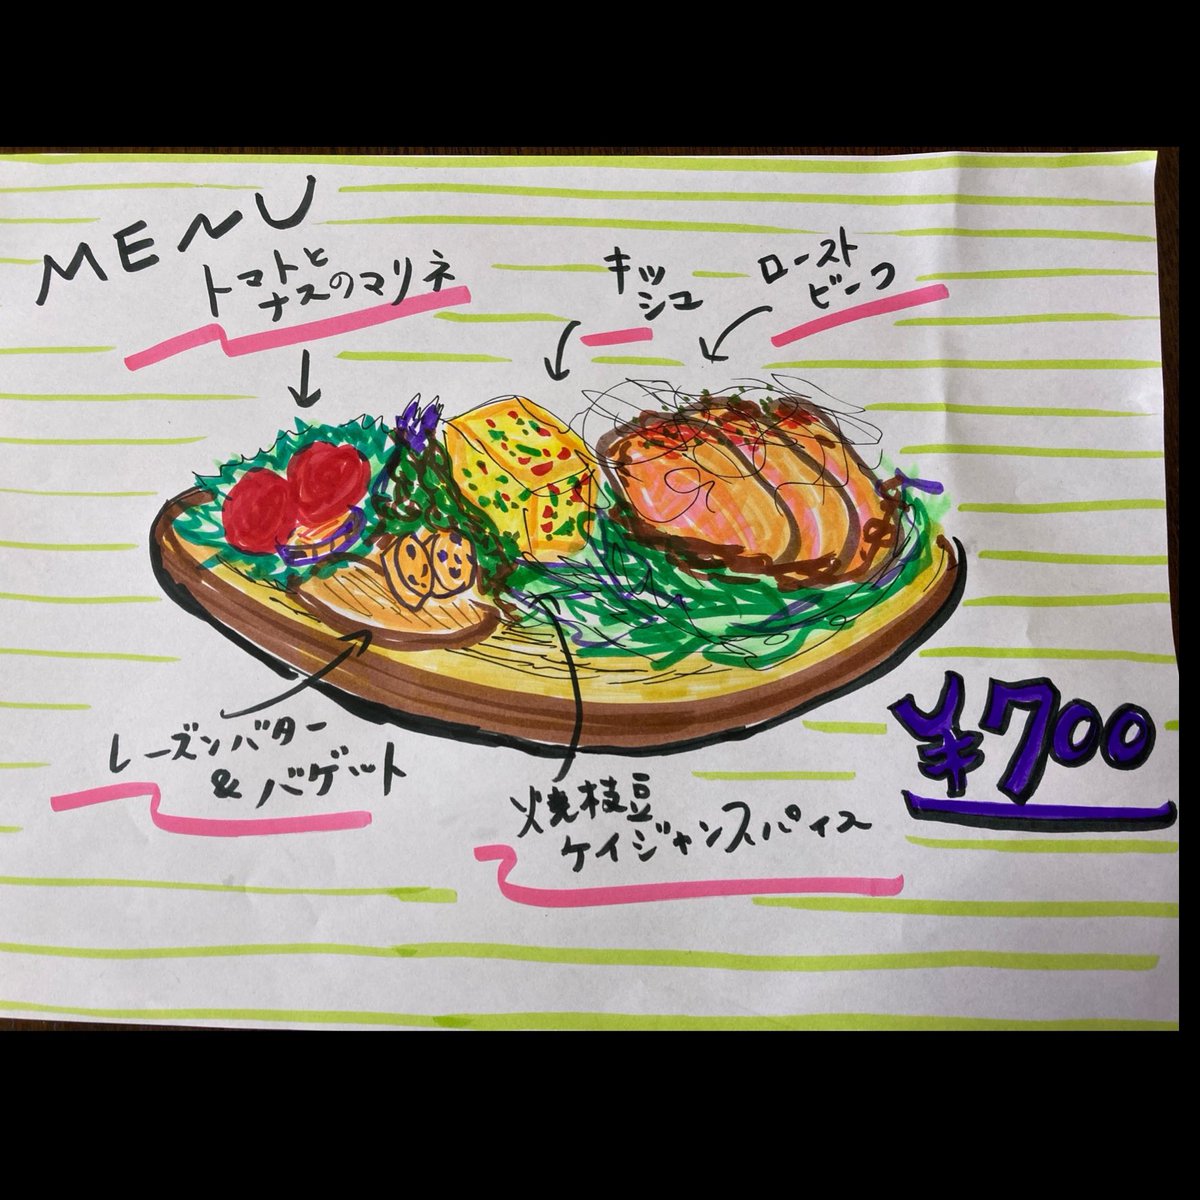 MENU
トマトと
ナスのマリネ
キッ
シュ
ロースト
ビーフ
レーズンバター
&バゲット
焼枝豆
ケイジャンスパイス
¥700